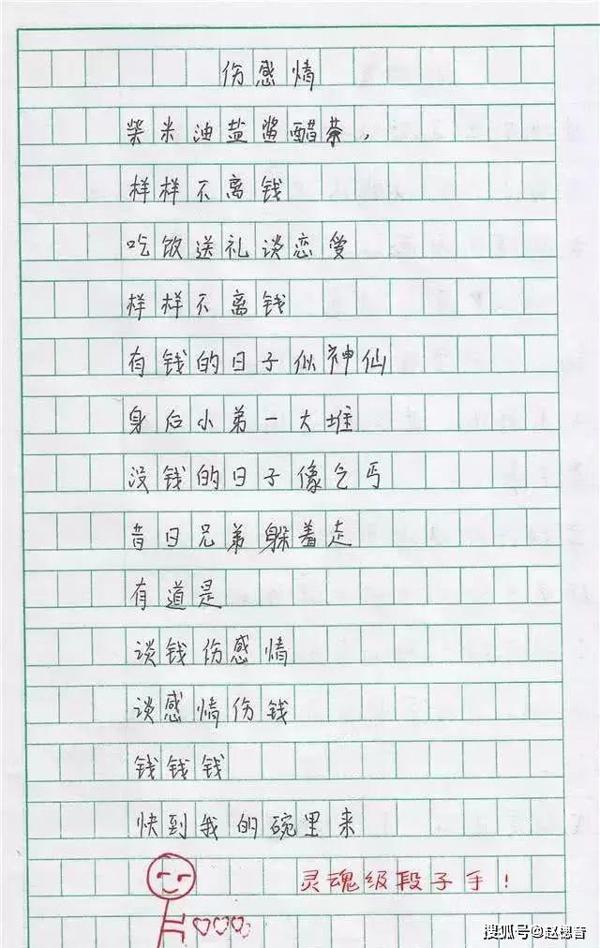 伤感情
柴米油盐酱醋茶，
样样不离钱
吃饭送礼谈恋爱
样样不离钱
有钱的日子似神仙
身后小弟一大堆
没钱的日子像乞丐
昔日兄弟躲着走
有道是
谈钱伤感情
谈感情伤钱
钱钱钱
快到我的碗里来
灵魂级段子手！
搜狐号@赵想音